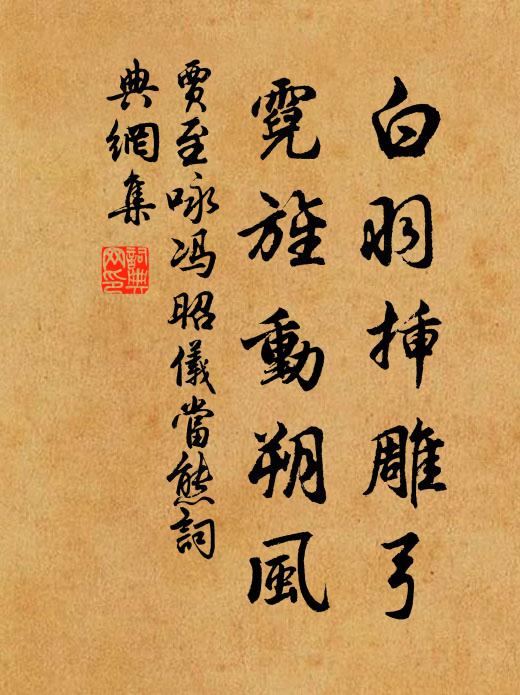 白羽插雕弓
霓旌動朔風
賈至咏冯昭儀當熊詞
典網集
詞典
网印